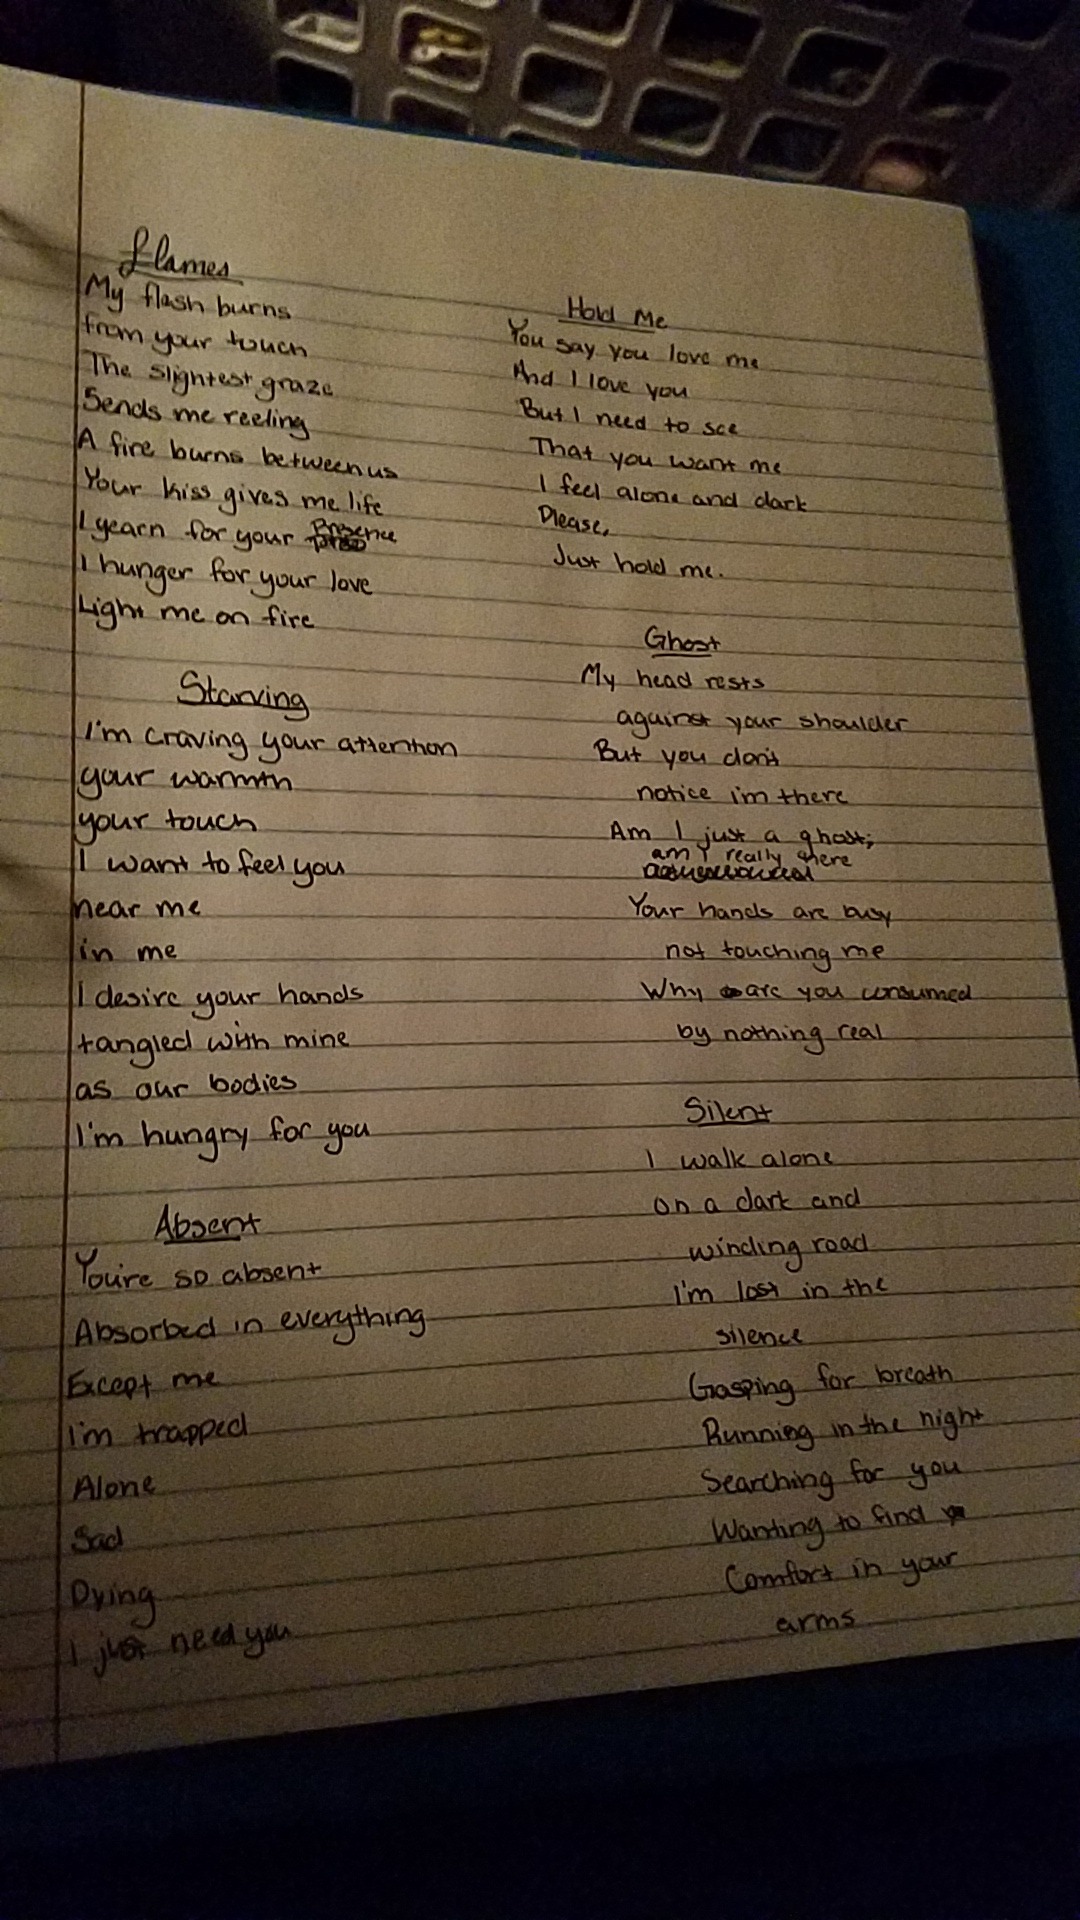 Flames
My flesh burns
from your touch
The slightest graze
Sends me reeling
A fire burns between us
Your kiss gives me life
I yearn for your Presence
I hunger for your love
Light me on fire
Starving
I'm craving your attention
your warmth
your touch
I want to feel you
near me
in me
I desire your hands
tangled with mine
as our bodies
I'm hungry for you
Absent
You're so absent
Absorbed in everything
Except me
I'm trapped
Alone
Sad
Dying
I just need you
Hold Me
You say you love me
And I love you
But I need to see
That you want me
I feel alone and dark
Please,
Just hold me.
Ghost
My head rests
against your shoulder
But you don't
notice i'm there
Am I just a ghost;
am I really there
Your hands are busy
not touching me
Why are you consumed
by nothing real
Silent
I walk alone
on a dark and
winding road
I'm lost in the
silence
Gasping for breath
Running in the night
Searching for you
Wanting to find
Comfort in your
arms